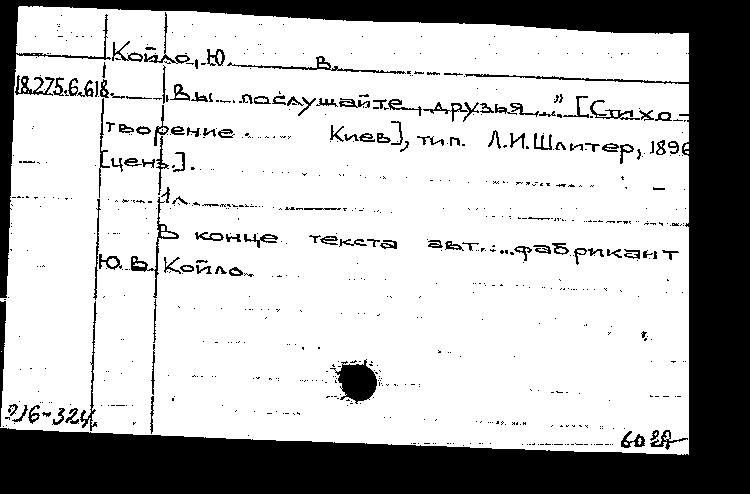 Койло, Ю. В.
18.275.6.618. „Вы послушайте, друзья...” [Стихо-
творение. Киев], тип. Л.И.Шлитер, 1896
[ценз.].
1л.
В конце текста авт.: ...фабрикант
Ю. В. Койло.
216-324. 602